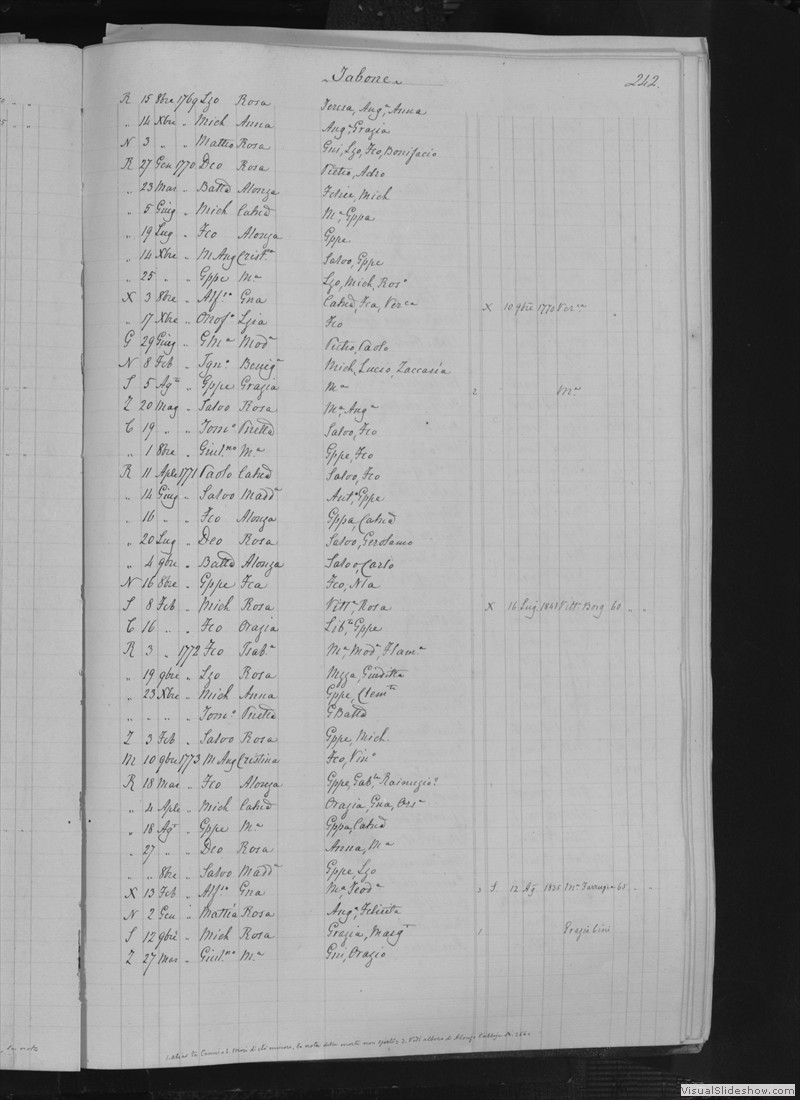 Tabone
242.
R 15 8bre 1769 Lzo Rosa Teresa, Ang.a Anna
„ 14 Xbre „ Mich Anna Ang.a Grazia
N 3 „ „ Matteo Rosa Gni, Lzo, Fco, Bonifacio
R 27 Gen 1770 Deo Rosa Pietro, Adro
„ 23 Mar „ Batta Alonza Felice, Mich
„ 5 Giug „ Mich Catna M.a Gppa
„ 19 Lug „ Fco Alonza Gppe
„ 14 Xbre „ M Ang Crist.a Salvo, Gppe
„ 25 „ „ Gppe M.a Lzo, Mich, Ros.a
X 3 8bre „ Alf.so Gna Catna, Fca, Ver.ca X 10 9bre 1770 Ver.ca
„ 17 Xbre „ Onof.o Lzia Fco
G 29 Giug „ G M.a Mod.a Pietro, Paolo
N 8 Feb „ Ign.o Benig.a Mich, Lucio, Zaccaria
S 5 Ag.to „ Gppe Grazia M.a 2 M.a
Z 20 Mag „ Salvo Rosa M.a, Ang.a
C 19 „ „ Tom.o Pnetta Salvo, Fco
„ 1 8bre „ Giul.mo M.a Gppe, Fco
R 11 Aple 1771 Paolo Catna Salvo, Fco
„ 14 Giug „ Salvo Madd.a Ant.o Gppe
„ 16 „ „ Fco Alonza Gppa, Catna
„ 20 Lug „ Deo Rosa Salvo, Gerolamo
„ 4 9bre „ Batta Alonza Salvo, Carlo
N 16 8bre „ Gppe Fca Fco, Nla
S 8 Feb „ Mich Rosa Vitt.a, Rosa X 16 Lug 1841 Vitt. Borg 60 „ „
C 16 „ „ Fco Orazia Lib.ta Gppe
R 3 „ 1772 Fco Isab.a M.a, Mod.a, Flam.a
„ 19 9bre „ Lzo Rosa Mzza, Giuditta
„ 23 Xbre „ Mich Anna Gppe, Clem.te
„ „ „ „ Tom.o Pnetta GBatta
Z 3 Feb „ Salvo Rosa Gppe, Mich
M 10 9bre 1773 M Ang Cristina Fco, Vin.o
R 18 Mar „ Fco Alonza Gppe, Gab.le Rainuzio
„ 4 Aple „ Mich Catna Orazia, Gna, Ors.a
„ 18 Ag.t „ Gppe M.a Gppa, Catna
„ 27 „ „ Deo Rosa Anna, M.a
„ „ 8bre „ Salvo Madd.a Gppe, Lzo
X 13 Feb „ Alf.so Gna M.a Teod.a 3 S. 12 Ag 1831 M.a Farrugia 65 „ „
N 2 Gen „ Mattia Rosa Ang.a, Felicita
S 12 9bre „ Mich Rosa Grazia, Marg.a 1 Grazia
Z 27 Mar „ Giul.mo M.a Gni, Orazio
VisualSlideshow.com